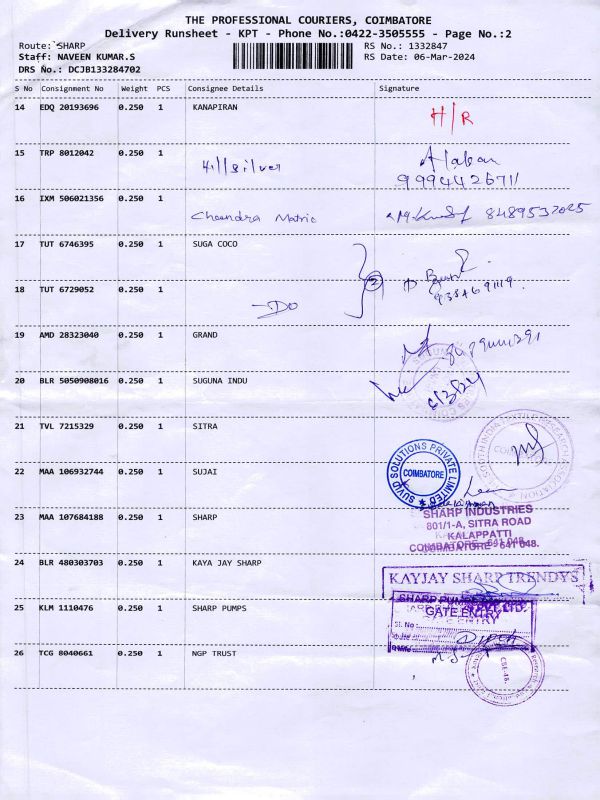 THE PROFESSIONAL COURIERS, COIMBATORE
Delivery Runsheet - KPT - Phone No.:0422-3505555 - Page No.:2
Route: SHARP
RS No.: 1332847
Staff: NAVEEN KUMAR.S
RS Date: 06-Mar-2024
DRS No.: DCJB133284702
S No Consignment No Weight PCS Consignee Details Signature
14 EDQ 20193696 0.250 1 KANAPIRAN
H/R
15 TRP 8012042 0.250 1
Hillsilver
9994426711
16 IXM 506021356 0.250 1
Chandra Matric 8489532025
17 TUT 6746395 0.250 1 SUGA COCO
2
18 TUT 6729052 0.250 1
-Do
19 AMD 28323040 0.250 1 GRAND
20 BLR 5050908016 0.250 1 SUGUNA INDU
6/3/24
21 TVL 7215329 0.250 1 SITRA
SOUTH INDIA TEXTILE RESEARCH ASSOCIATION
22 MAA 106932744 0.250 1 SUJAI
SUVID SOLUTIONS PRIVATE LIMITED
COIMBATORE
23 MAA 107684188 0.250 1 SHARP
SHARP INDUSTRIES
801/1-A, SITRA ROAD
KALAPPATTI
COIMBATORE - 641 048.
24 BLR 480303703 0.250 1 KAYA JAY SHARP
KAYJAY SHARP TRENDYS
25 KLM 1110476 0.250 1 SHARP PUMPS
SHARP PUMPS PVT LTD
GATE ENTRY
Sl. No
26 TCG 8040661 0.250 1 NGP TRUST
CBE-48.